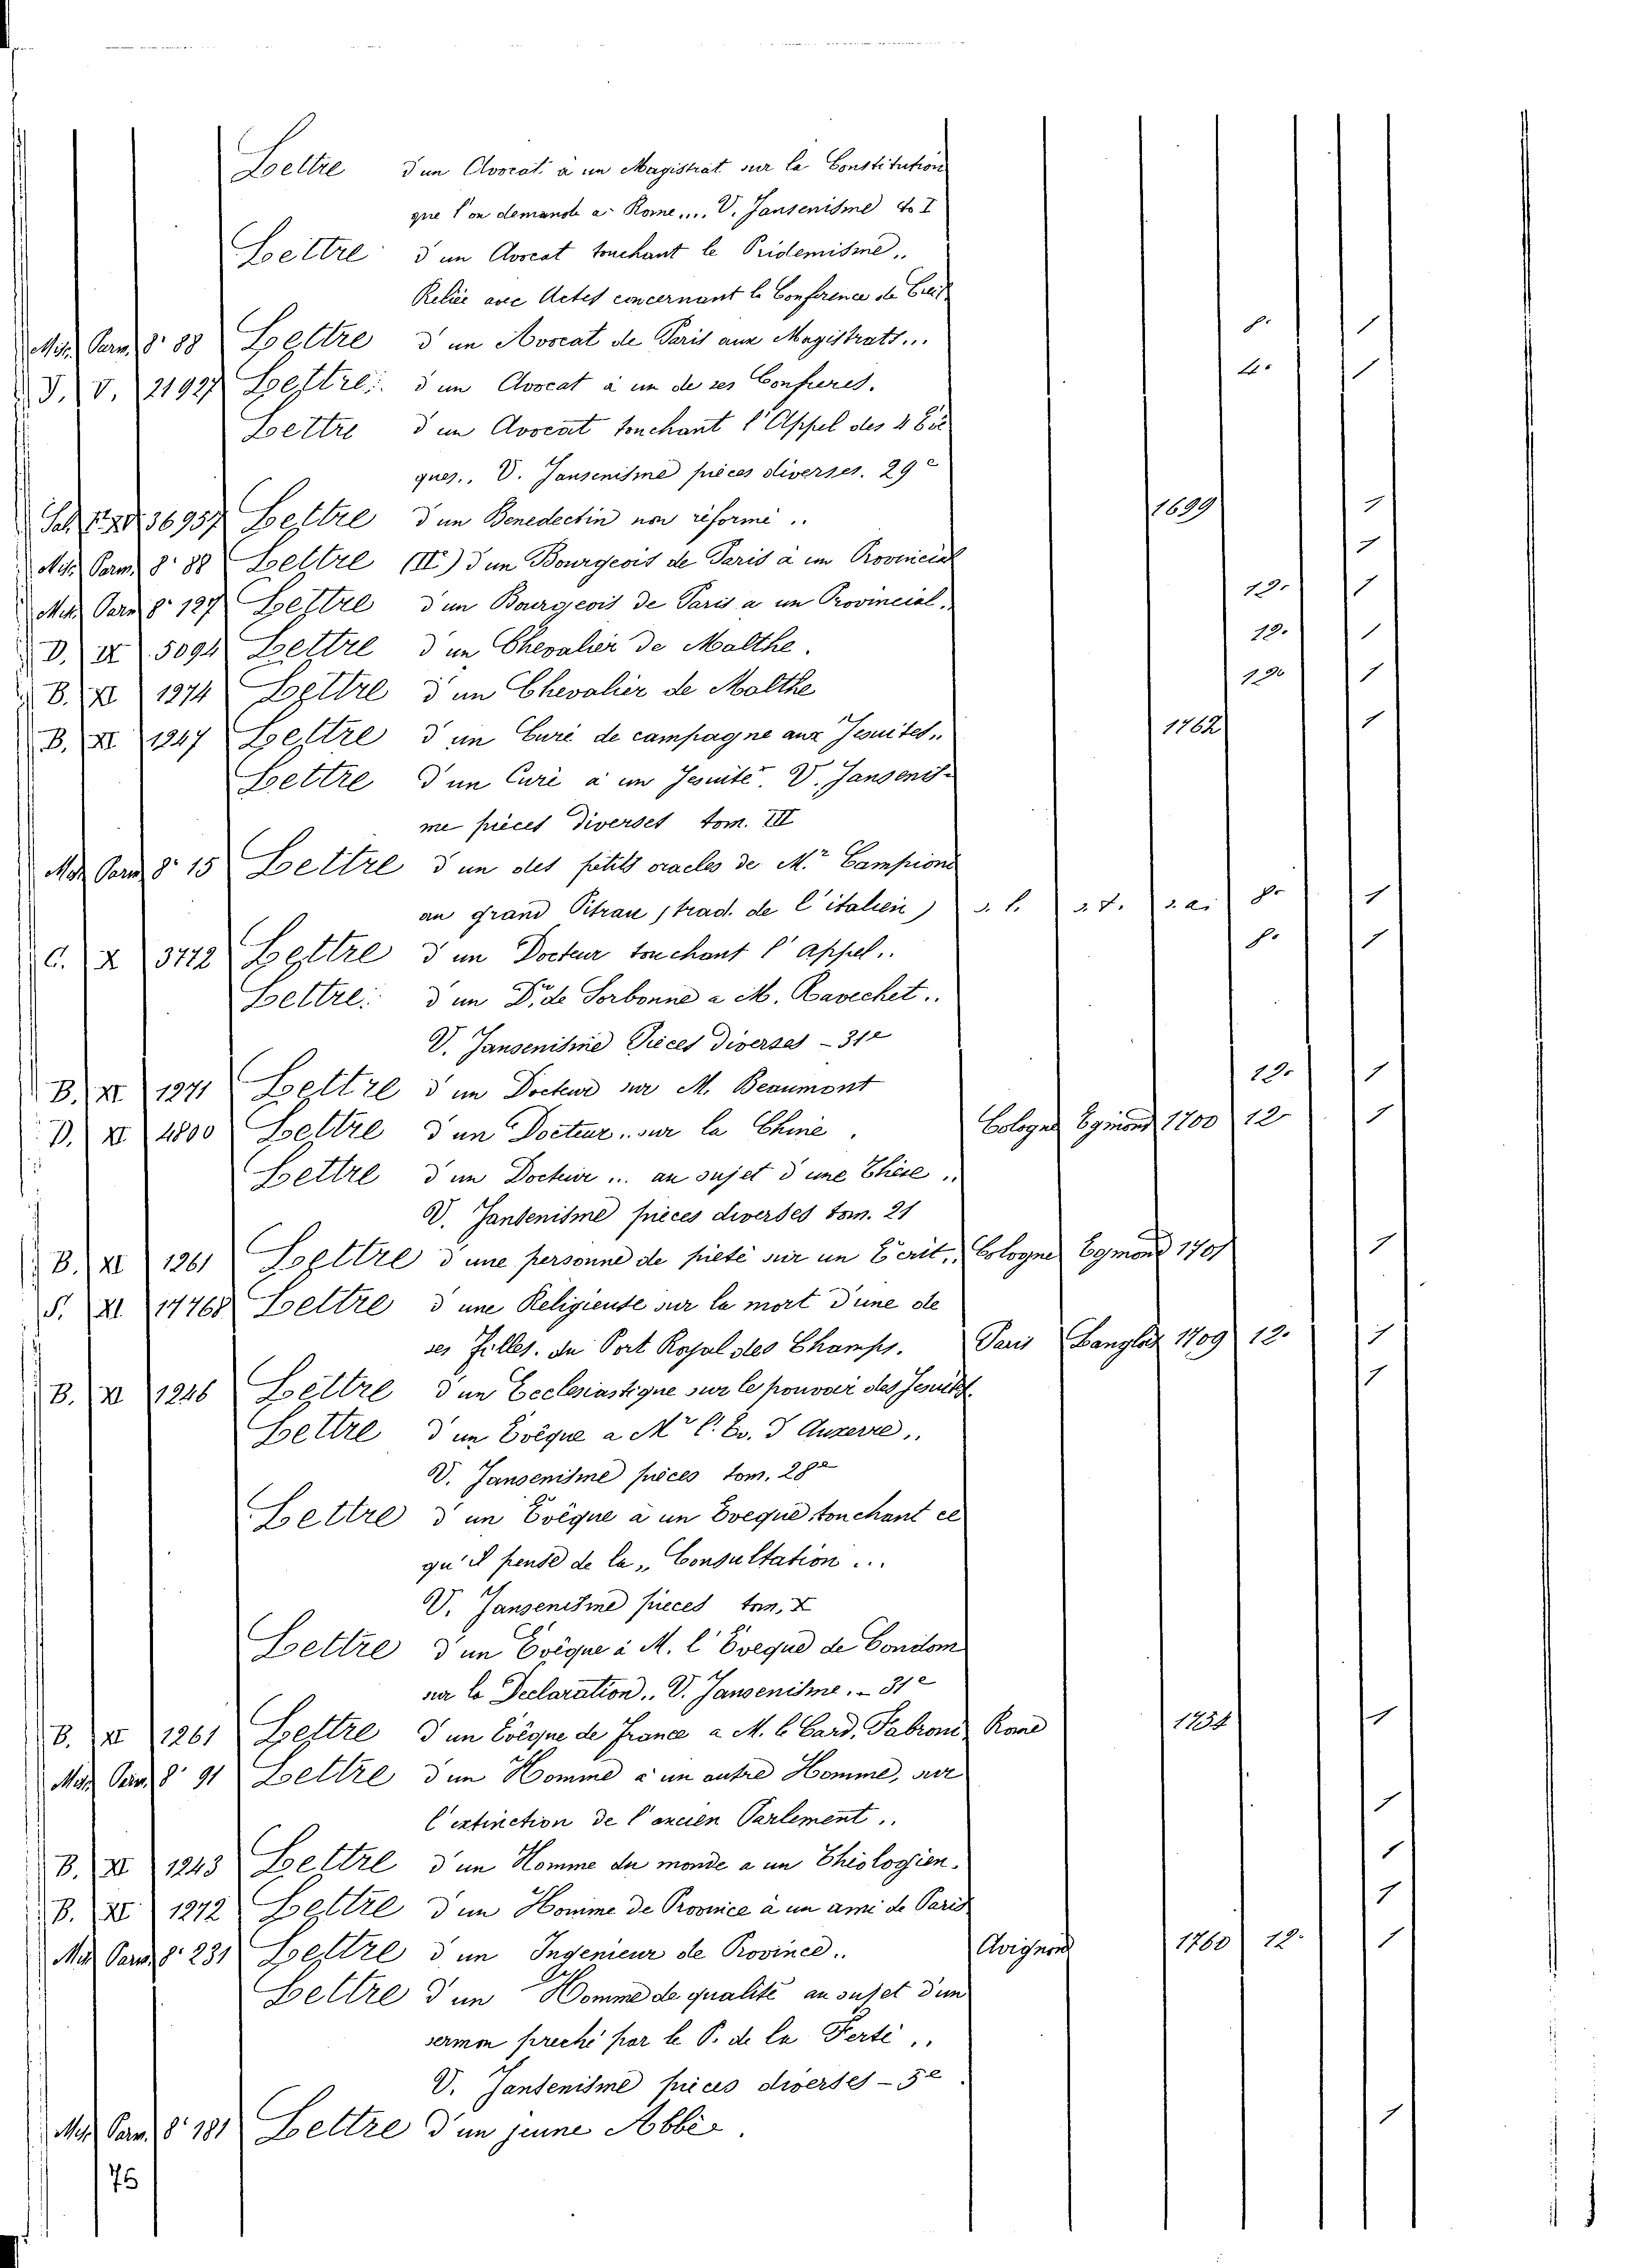 Lettre d'un Avocat à un Magistrat sur la Constitution
que l'on demande a Rome.... V. Jansenisme to I
Lettre d'un Avocat touchant le Pridemisme..
Relié avec Actes concernant la Conference de
Mis. Parm. 8° 88 Lettre d'un Avocat de Paris aux Magistrats... 8° 1
J. V. 21927 Lettre d'un Avocat à un de ses Confreres. 4° 1
Lettre d'un Avocat touchant l'Appel des 4 Evê
ques., V. Jansenisme pièces diverses. 29e
36957 Lettre d'un Benedectin non réformé .. 1699 1
Mis. Parm. 8° 88 Lettre (IIe) d'un Bourgeois de Paris à un Provincial 1
Mis. Parm 8° 127 Lettre d'un Bourgeois de Paris a un Provincial. 12° 1
D. IX 5094 Lettre d'un Chevalier de Malthe. 12° 1
B. XI 1274 Lettre d'un Chevalier de Malthe 12° 1
B. XI 1247 Lettre d'un Curé de campagne aux Jesuites.. 1762 1
Lettre d'un Curé à un Jesuite". V. Jansenis-
me pièces diverses tom. III
Mis. Parm 8° 15 Lettre d'un des petits oracles de M.r Campioni
au grand Pitrau (trad. de l'italien) s. l. s. t. s. a. 8° 1
C. X 3772 Lettre d'un Docteur touchant l'appel.. 8° 1
Lettre d'un D.r de Sorbonne a M. Ravechet..
V. Jansenisme Pièces diverses - 31e
B. XI 1271 Lettre d'un Docteur sur M. Beaumont 12° 1
D. XI 4800 Lettre d'un Docteur.. sur la Chine. Cologne Egmond 1700 12° 1
Lettre d'un Docteur ... au sujet d'une Thèse..
V. Jansenisme pièces diverses tom. 21
B. XI 1261 Lettre d'une personne de pieté sur un Ecrit.. Cologne Egmond 1701 1
S. XI 14768 Lettre d'une Religieuse sur la mort d'une de
ses Filles. du Port Royal des Champs. Paris Langlois 1709 12° 1
B. XI 1246 Lettre d'un Ecclesiastique sur le pouvoir des Jesuites 1
Lettre d'un Evêque a Mr l. Ev. d'Auxerre..
V. Jansenisme pièces tom. 28e
Lettre d'un Evêque à un Eveque touchant ce
qu'il pense de la „Consultation ...
V. Jansenisme pieces tom. X
Lettre d'un Evêque à M. l'Eveque de Condom
sur la Declaration.. V. Jansenisme. - 31e
B. XI 1261 Lettre d'un Evêque de France a M. le Card. Fabroni Rome 1754 1
Mis. Parm. 8° 91 Lettre d'un Homme à un autre Homme, sur
l'extinction de l'ancien Parlement .. 1
B. XI 1243 Lettre d'un Homme du monde a un Théologien. 1
B. XI 1272 Lettre d'un Homme de Province à un ami de Paris 1
Mis. Parm. 8° 231 Lettre d'un Ingenieur de Province.. Avignon 1760 12° 1
Lettre d'un Homme de qualité au sujet d'un
sermon preché par le P. de la Ferté..
V. Jansenisme pièces diverses - 5e.
Mis. Parm. 8° 181 Lettre d'un jeune Abbé. 1
75